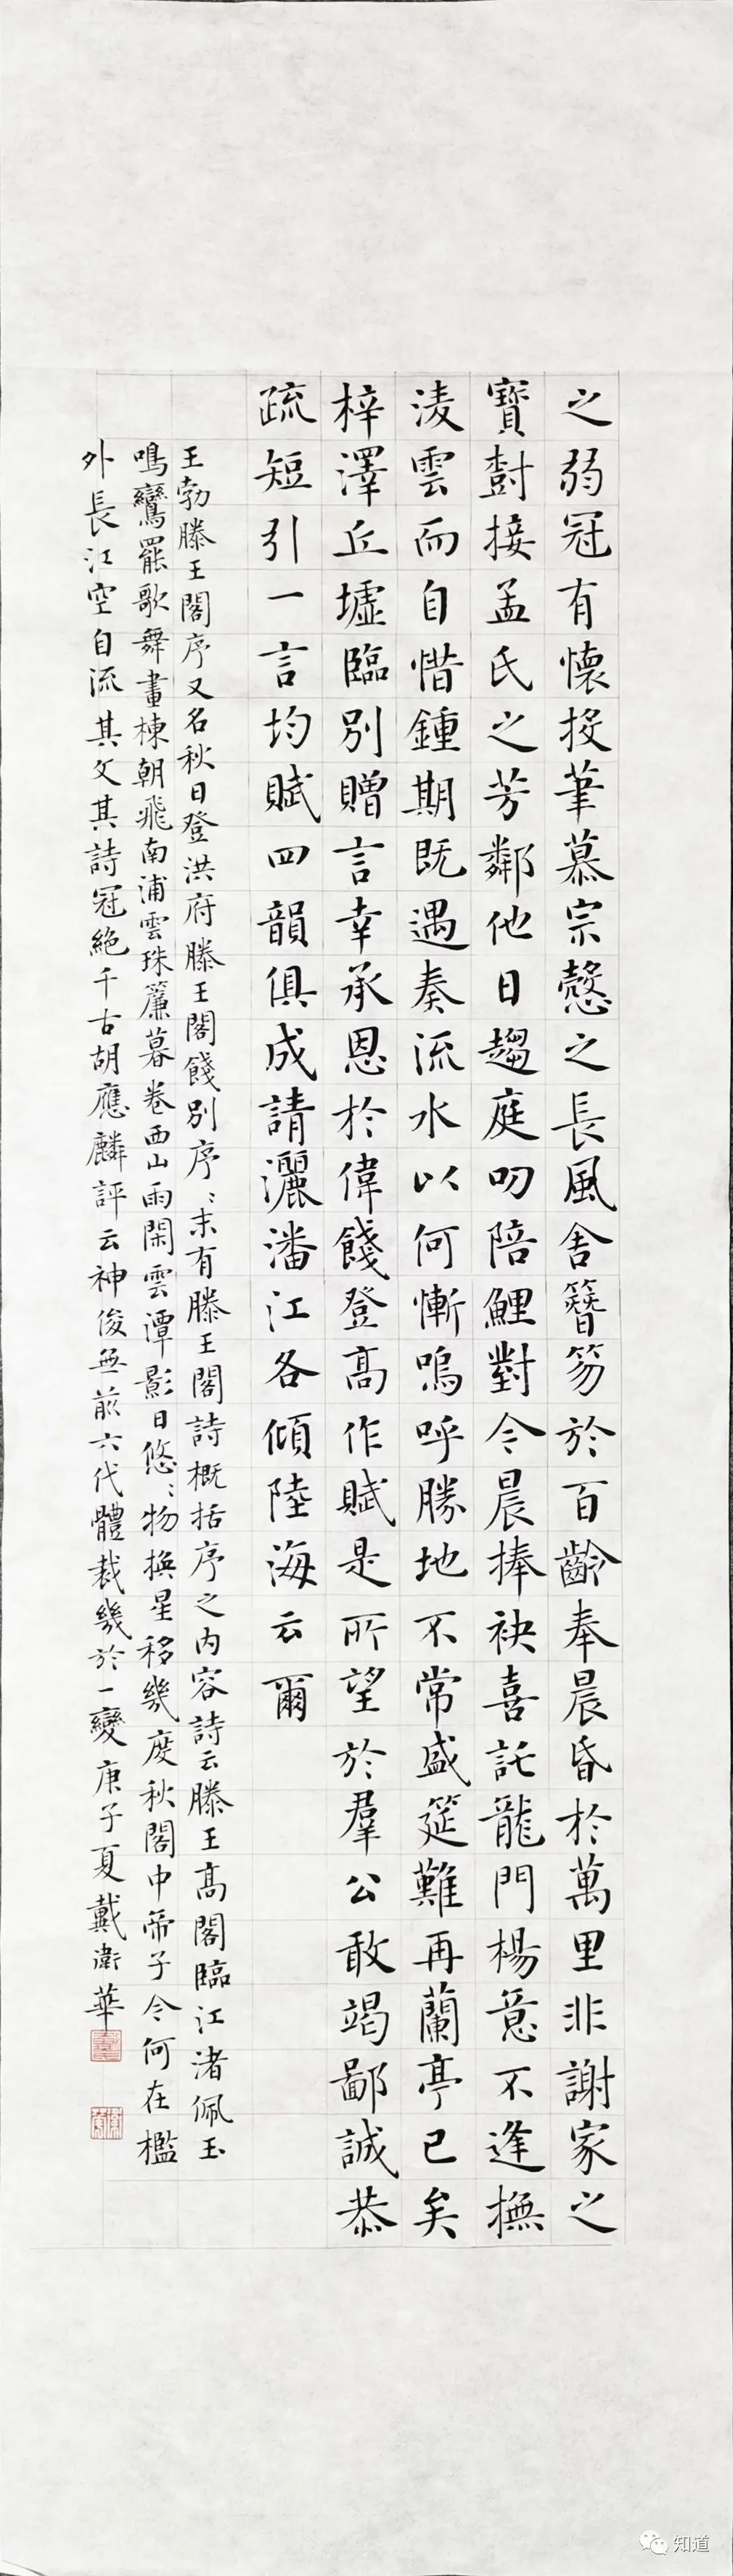 之弱冠有懷投筆慕宗慤之長風舍簪笏於百齡奉晨昏於萬里非謝家之
寶樹接孟氏之芳鄰他日趨庭叨陪鯉對今晨捧袂喜託龍門楊意不逢撫
淩雲而自惜鍾期既遇奏流水以何慚嗚呼勝地不常盛筵難再蘭亭已矣
梓澤丘墟臨別贈言幸承恩於偉餞登高作賦是所望於羣公敢竭鄙誠恭
疏短引一言均賦四韻俱成請灑潘江各傾陸海云爾
王勃滕王閣序又名秋日登洪府滕王閣餞別序〻末有滕王閣詩概括序之内容詩云滕王高閣臨江渚佩玉
鳴鸞罷歌舞畫棟朝飛南浦雲珠簾暮卷西山雨閑雲潭影日悠〻物換星移幾度秋閣中帝子今何在檻
外長江空自流其文其詩冠絕千古胡應麟評云神俊無前六代體裁幾於一變庚子夏戴衛華
知道